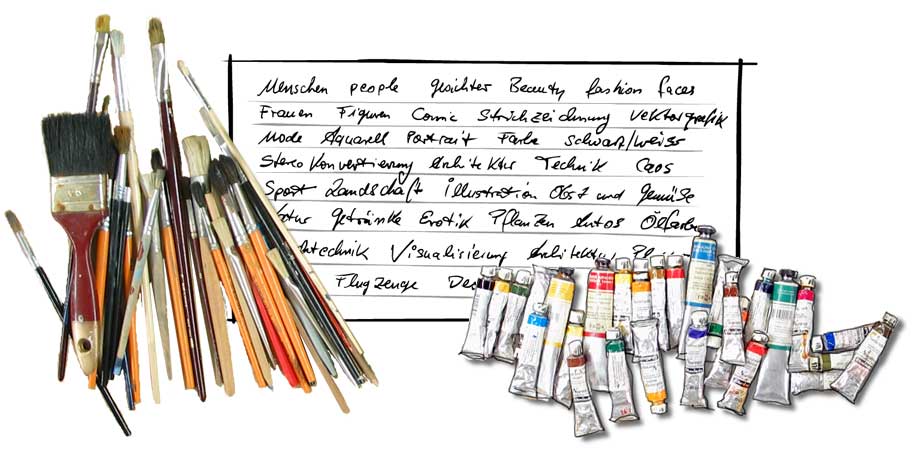 Menschen people gesichter Beauty fashion faces
Frauen Figuren Comic Strichzeichnung Vektorgrafik
Mode Aquarell Portrait Farbe schwarz/weiss
Stereo Konvertierung Architektur Technik Caos
Sport Landschaft illustration Obst und gemüse
getränke Erotik Pflanzen Autos
Visualisierung Architektur
Flugzeuge